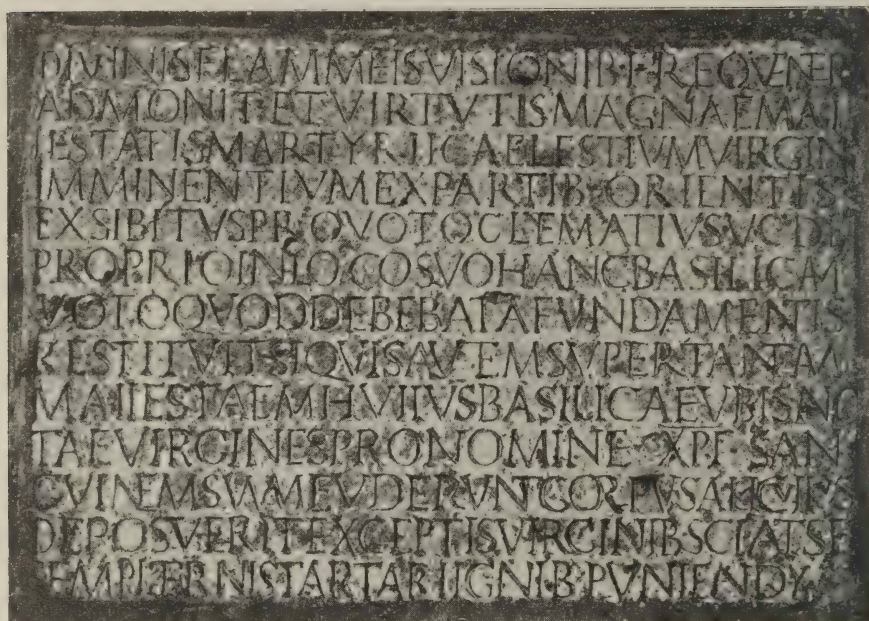 DIVINIS FLAMMEIS VISIONIB FREQVENTER
ADMONIT ET VIRTVTIS MAGNAE MAI
IESTATIS MARTYRII CAELESTIVM VIRGIN
IMMINENTIVM EX PARTIB ORIENTIS
EXSIBITVS PRO VOTO CLEMATIVS VC DE
PROPRIO IN LOCO SVO HANC BASILICAM
VOTO QVOD DEBEBAT A FVNDAMENTIS
RESTITVIT SI QVIS AVTEM SVPER TANTAM
MAIIESTATEM HVIIVS BASILICAE VBI SANC
TAE VIRGINES PRO NOMINE XPI SAN
GVINEM SVVM FVDERVNT CORPVS ALICVIIVS
DEPOSVERIT EXCEPTIS VIRGINIB SCIAT SE
SEMPITERNIS TARTARI IGNIB PVNIENDVM